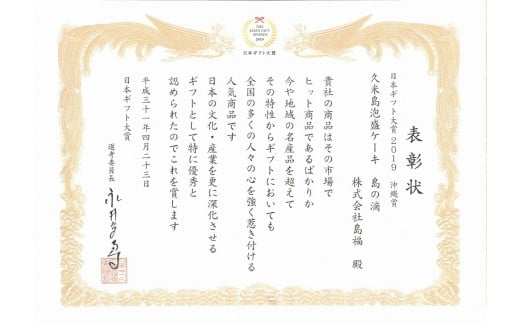 THE
JAPAN GIFT
AWARDS
2019
日本ギフト大賞
表彰状
日本ギフト大賞2019 沖縄賞
久米島泡盛ケーキ 島の滴
株式会社島福 殿
貴社の商品はその市場で
ヒット商品であるばかりか
今や地域の名産品を超えて
その特性からギフトにおいても
全国の多くの人々の心を強く惹き付ける
人気商品です
日本の文化・産業を更に深化させる
ギフトとして特に優秀と
認められたのでこれを賞します
平成三十一年四月二十三日
日本ギフト大賞
選考委員長